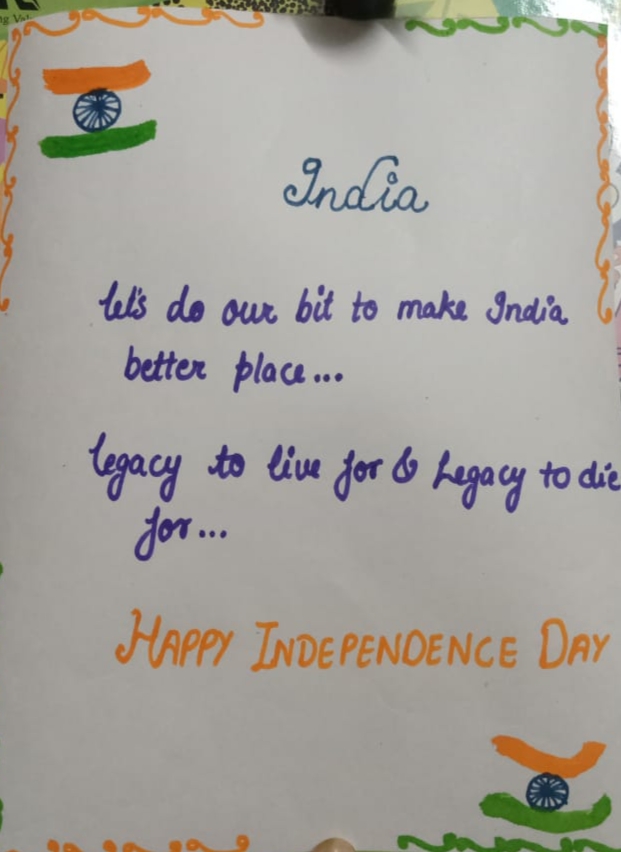 India
let's do our bit to make India
better place...
legacy to live for & Legacy to die
for...
HAPPY INDEPENDENCE DAY